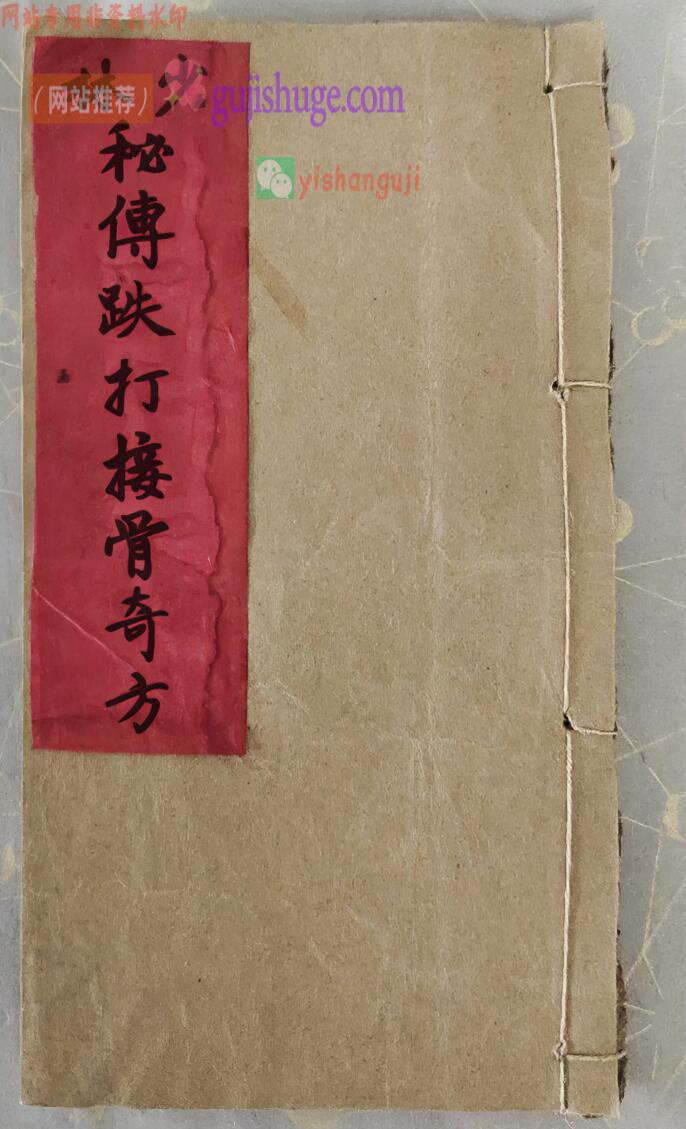 网站专用非资料水印
(网站推荐)
gujishuge.com
yishanguji
少林
秘傳跌打接骨奇方